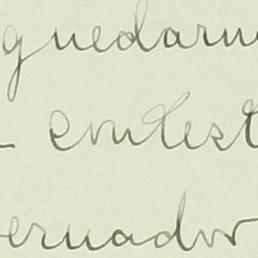 quedaru
- contest
ernador